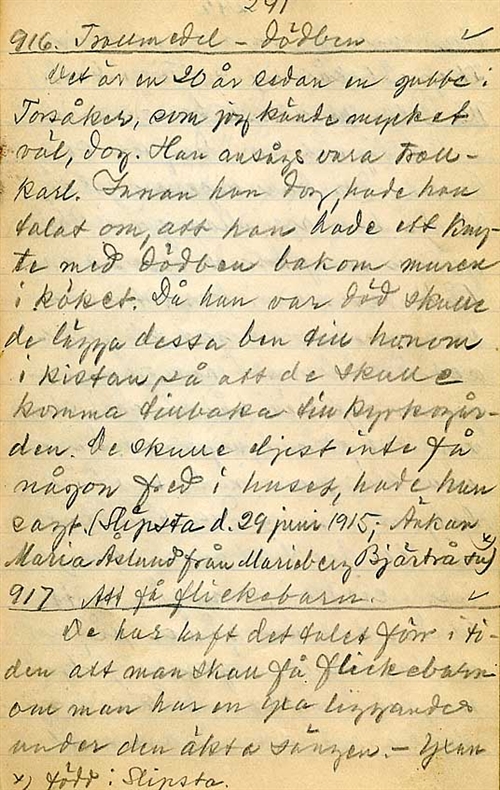 291
916. Trollmedel - dödben
Det är en 20 år sedan en gubbe i
Torsåker, som jag kände mycket
väl, dog. Han ansågs vara troll-
karl. Innan han dog, hade han
talat om, att han hade ett kny-
te med dödben bakom muren
i köket. Då han var död skulle
de lägga dessa ben till honom
i kistan så att de skulle
komma tillbaka till kyrkogår-
den. De skulle eljest inte få
någon fred i huset, hade han
sagt. (Slipsta d. 29 juni 1915; Änkan
Maria Åslund från Marieberg Bjärtrå sn) x)
917 Att få flickebarn.
De har haft det talet förr i ti-
den att man skall få flickebarn
om man har en yxa liggandes
under den äkta sängen. - Yxan
x) född i Slipsta.